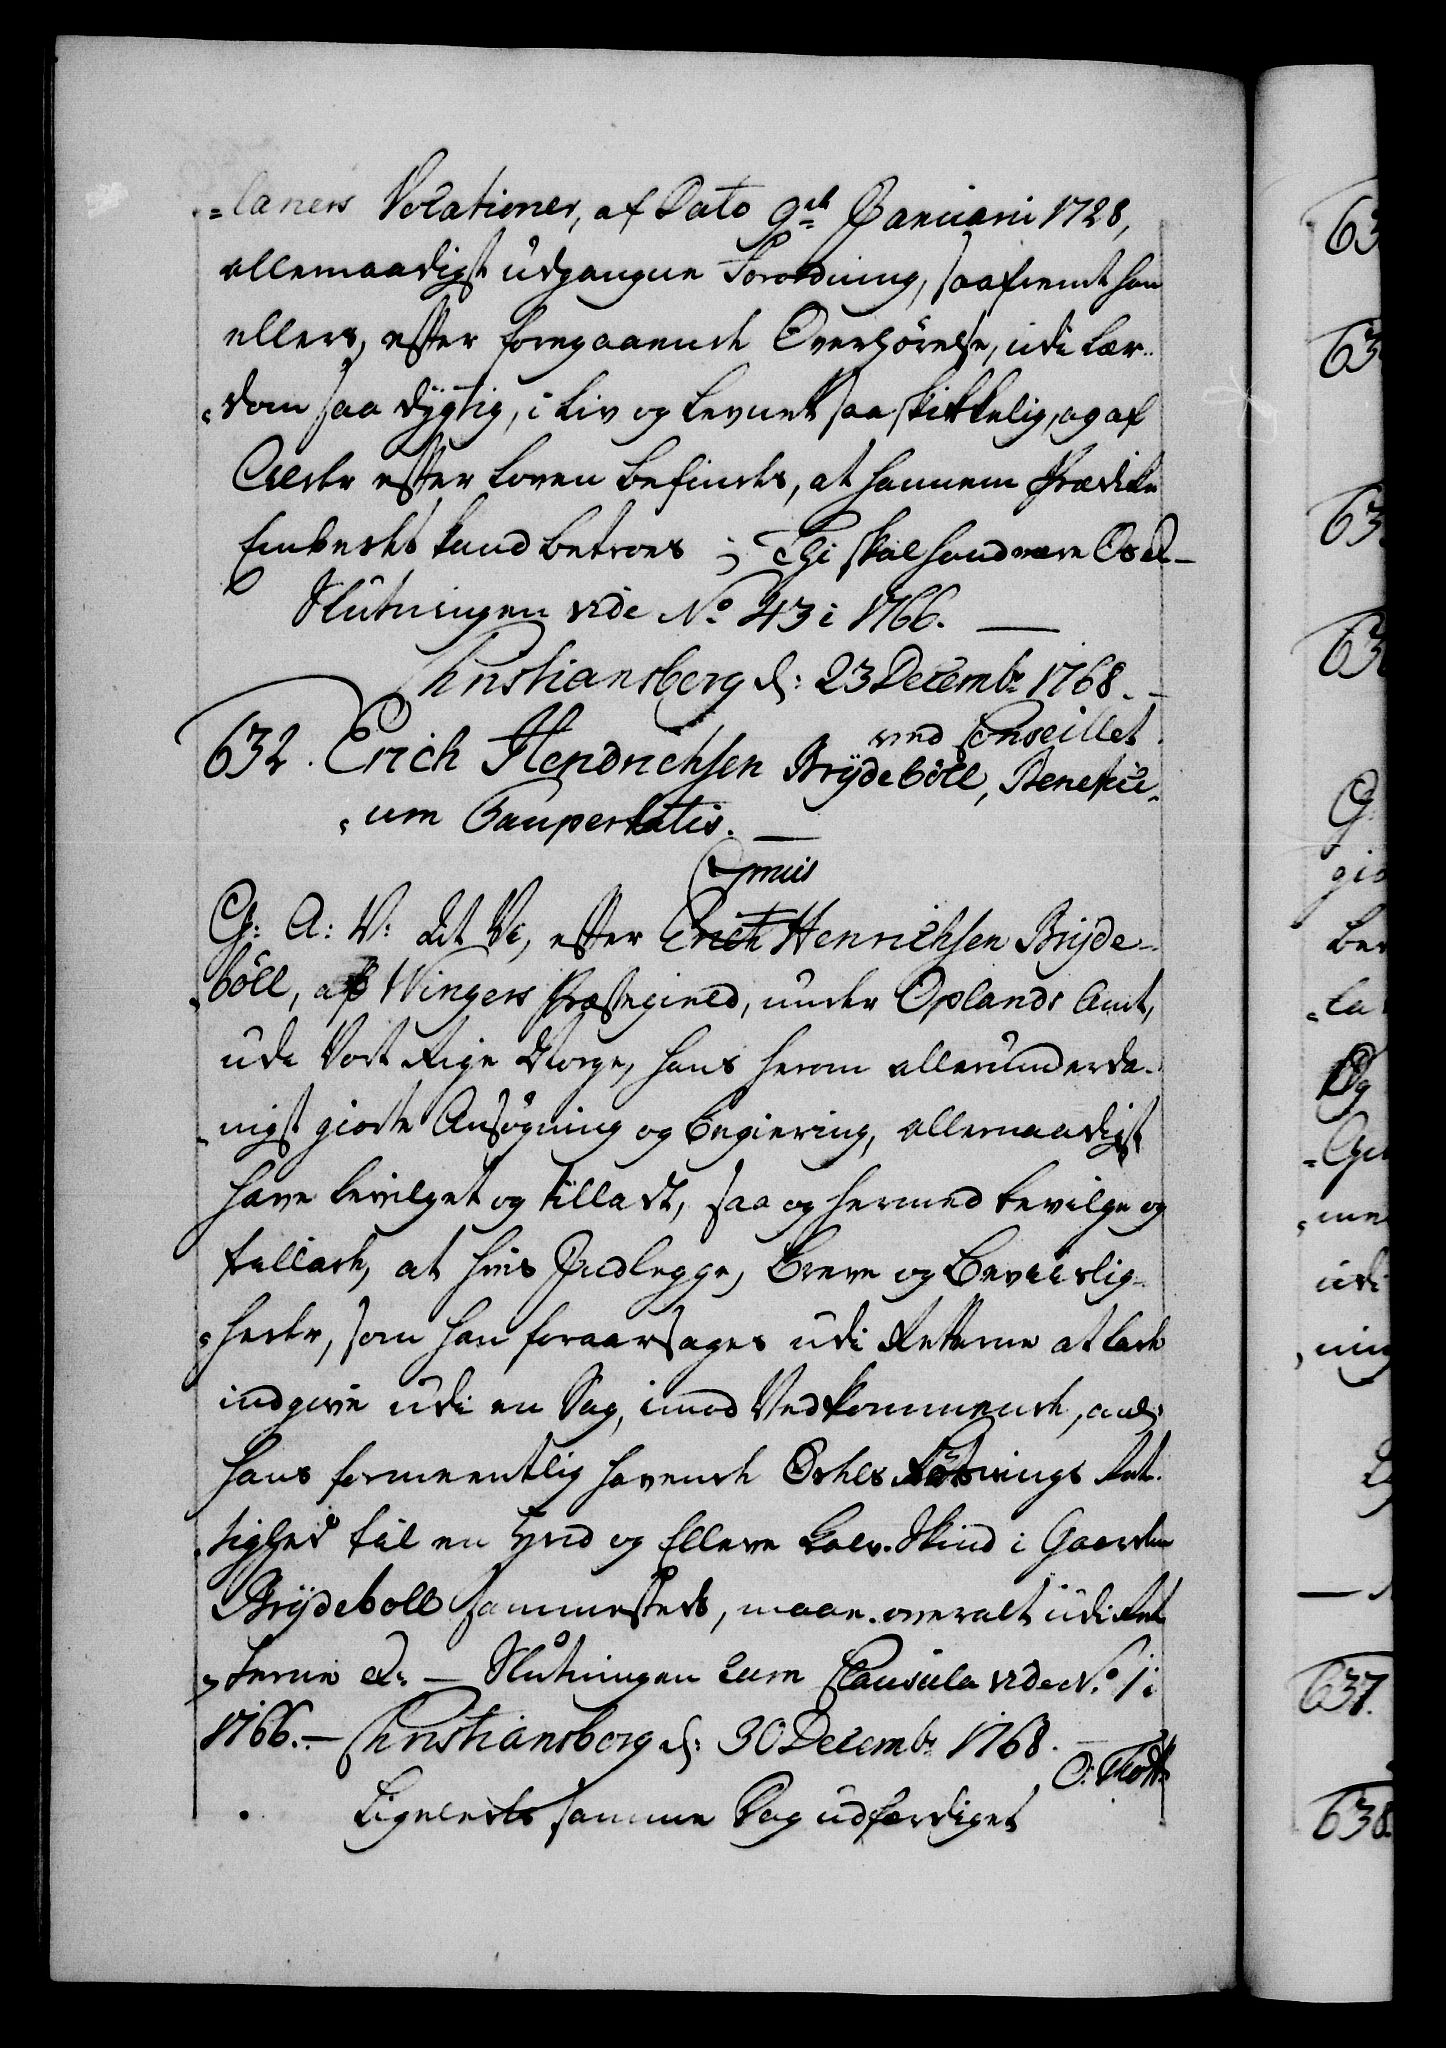 =laners Vocationer, af Dato 9de Januarii 1728,
allernaadigst udgangne Forordning, saafremt han
ellers, efter foregaaende Overhörelse, udi Lær-
=dom saa dygtig, i Liv og Levnet saa skikkelig, og af
Alder efter Loven befindes, at hannem Prædike
Embedet kand betroes; Thi skal hand være
Slutningen vide No. 43 i 1766. —
Christiansberg d: 23 Decembr 1768. —
ved Conseillet
632. Erich Hendrichsen Brÿdeböll, Benefici-
=um Paupertatis. —
Omnis
G: A: V: At Vi, efter Erich Henrichsen Brÿde-
=böll, af Wingers Præstegield, under Oplands Amt,
udi Vort Rige Norge, hans herom allerunderda-
=nigst giorte Ansøgning og Begiering, allernaadigst
have bevilget og tilladt, saa og hermed bevilge og
tillade, at hvis Indlegge, Breve og Beviislig-
=heder, som han foraarsages udi Retterne at lade
indgive udi en Sag, imod Vedkommende, anl:
hans formeentlig havende Odels Løsnings Ret-
=tighed til en Hud og Elleve Kalv-Skind i Gaarden
Brÿdeboll sammesteds, maae overalt udi Ret
=terne &c. — Slutningen cum Clausula vide No. 1 i
1766. — Christiansborg d: 30 Decembr 1768. —
O: Thott
Ligeledes samme Dag udfærdiget
63
63
63
63
G:
ber
=la
Og
udi
637.
638.